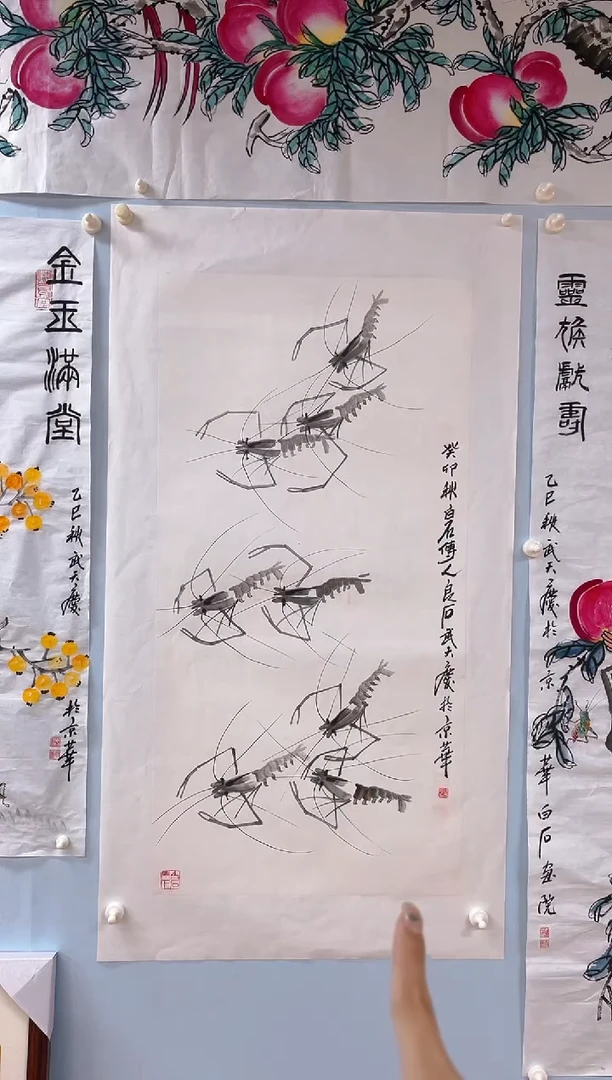 金玉滿堂
乙巳秋武天慶於京華
癸卯秋白石傳人良石武天慶於京華
靈猴獻壽
乙巳秋武天慶於京華白石畫院